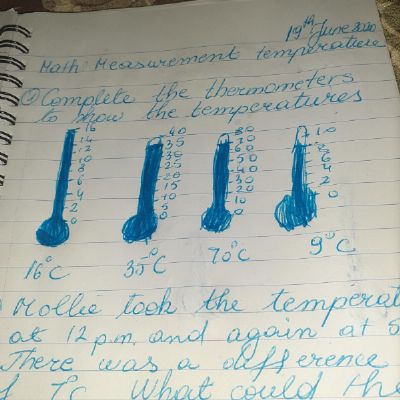 19th June 2020
Math: Measurement temperature
Complete the thermometers
to show the temperatures
16 14 12 10 8 6 4 2 0
40 35 30 25 20 15 10 5 0
80 70 60 50 40 30 20 10 0
10 8 6 4 2 0
16°C 35°C 70°C 9°C
Mollie took the temperat
at 12 p.m. and again at 5
There was a difference
7°C What could the